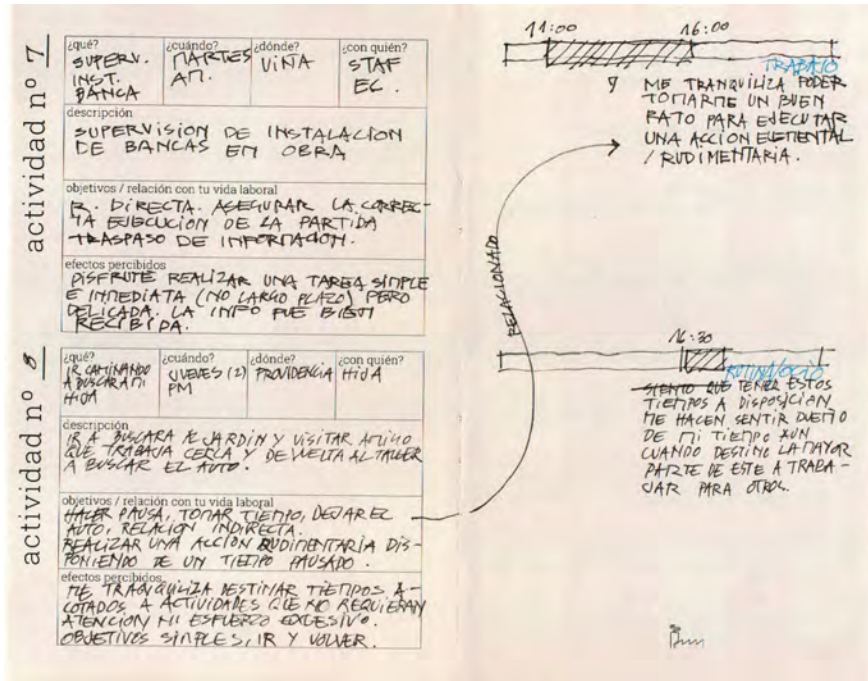 actividad nº 7
¿qué? ¿cuándo? ¿dónde? ¿con quién?
SUPERV. MARTES VIÑA STAF
INST. AM. EC.
BANCA
descripción
SUPERVISION DE INSTALACION
DE BANCAS EN OBRA
objetivos / relación con tu vida laboral
R. DIRECTA. ASEGURAR LA CORREC-
TA EJECUCION DE LA PARTIDA
TRASPASO DE INFORMACION.
efectos percibidos
DISFRUTE REALIZAR UNA TAREA SIMPLE
E INMEDIATA (NO LARGO PLAZO) PERO
DELICADA. LA INFO FUE BIEN
RECIBIDA.
actividad nº 8
¿qué? ¿cuándo? ¿dónde? ¿con quién?
IR CAMINANDO JUEVES (2) PROVIDENCIA HIJA
A BUSCAR A MI PM
HIJA
descripción
IR A BUSCARA AL JARDIN Y VISITAR AMIGO
QUE TRABAJA CERCA Y DE VUELTA AL TALLER
A BUSCAR EL AUTO.
objetivos / relación con tu vida laboral
HACER PAUSA, TOMAR TIEMPO, DEJAR EL
AUTO, RELACION INDIRECTA.
REALIZAR UNA ACCION RUDIMENTARIA DIS-
PONIENDO DE UN TIEMPO PAUSADO.
efectos percibidos
ME TRANQUILIZA DESTINAR TIEMPOS A-
COTADOS A ACTIVIDADES QUE NO REQUIERAN
ATENCION NI ESFUERZO EXCESIVO.
OBJETIVOS SIMPLES, IR Y VOLVER.
RELACIONADO
11:00 16:00
TRABAJO
ME TRANQUILIZA PODER
TOMARME UN BUEN
RATO PARA EJECUTAR
UNA ACCION ELEMENTAL
/ RUDIMENTARIA.
16:30
RUTINA/OCIO
SIENTO QUE TENER ESTOS
TIEMPOS A DISPOSICIAN
ME HACEN SENTIR DUEÑO
DE MI TIEMPO AUN
CUANDO DESTINO LA MAYOR
PARTE DE ESTE A TRABA-
JAR PARA OTROS.